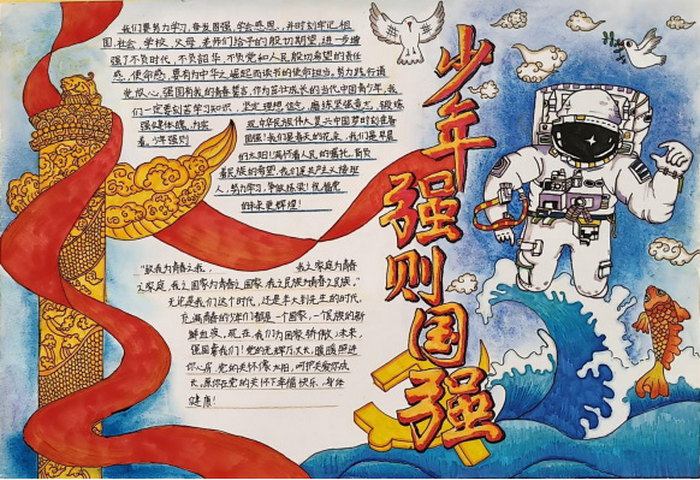 少年强则国强
我们要努力学习,奋发图强,学会感恩,并时刻牢记祖
国、社会、学校、父母、老师们给予的殷切期望,进一步增
强了不负时代,不负韶华,不负党和人民殷切希望的责任
感、使命感,要有为中华之崛起而读书的使命担当,努力践行请
党放心,强国有我的青春誓言,作为茁壮成长的当代中国青少年,我
们一定要刻苦学习知识,坚定理想信念,磨练坚强意志,锻炼
强健体魄,为实
现中华民族伟大复兴中国梦时刻准备
着,少年强则
国强!我们是春天的花朵,我们是早晨
的太阳!满怀着人民的嘱托,肩负
着民族的希望,我们是共产主义接班
人,努力学习,争做栋梁!祝福党
的未来更辉煌!
“以我为青春之我,
我之家庭为青春
之家庭,我之国家为青春之国家,我之民族为青春之民族,”
无论是我们这个时代,还是李大钊先生的时代,
充满青春的少年们都是一个国家,一个民族的新
鲜血液,现在,我们为国家骄傲;未来,
强国看我们!党的光辉万丈长,暖暖照进
你心房,党的关怀像太阳,呵护关爱你成
长,愿你在党的关怀下幸福快乐,身体
健康!